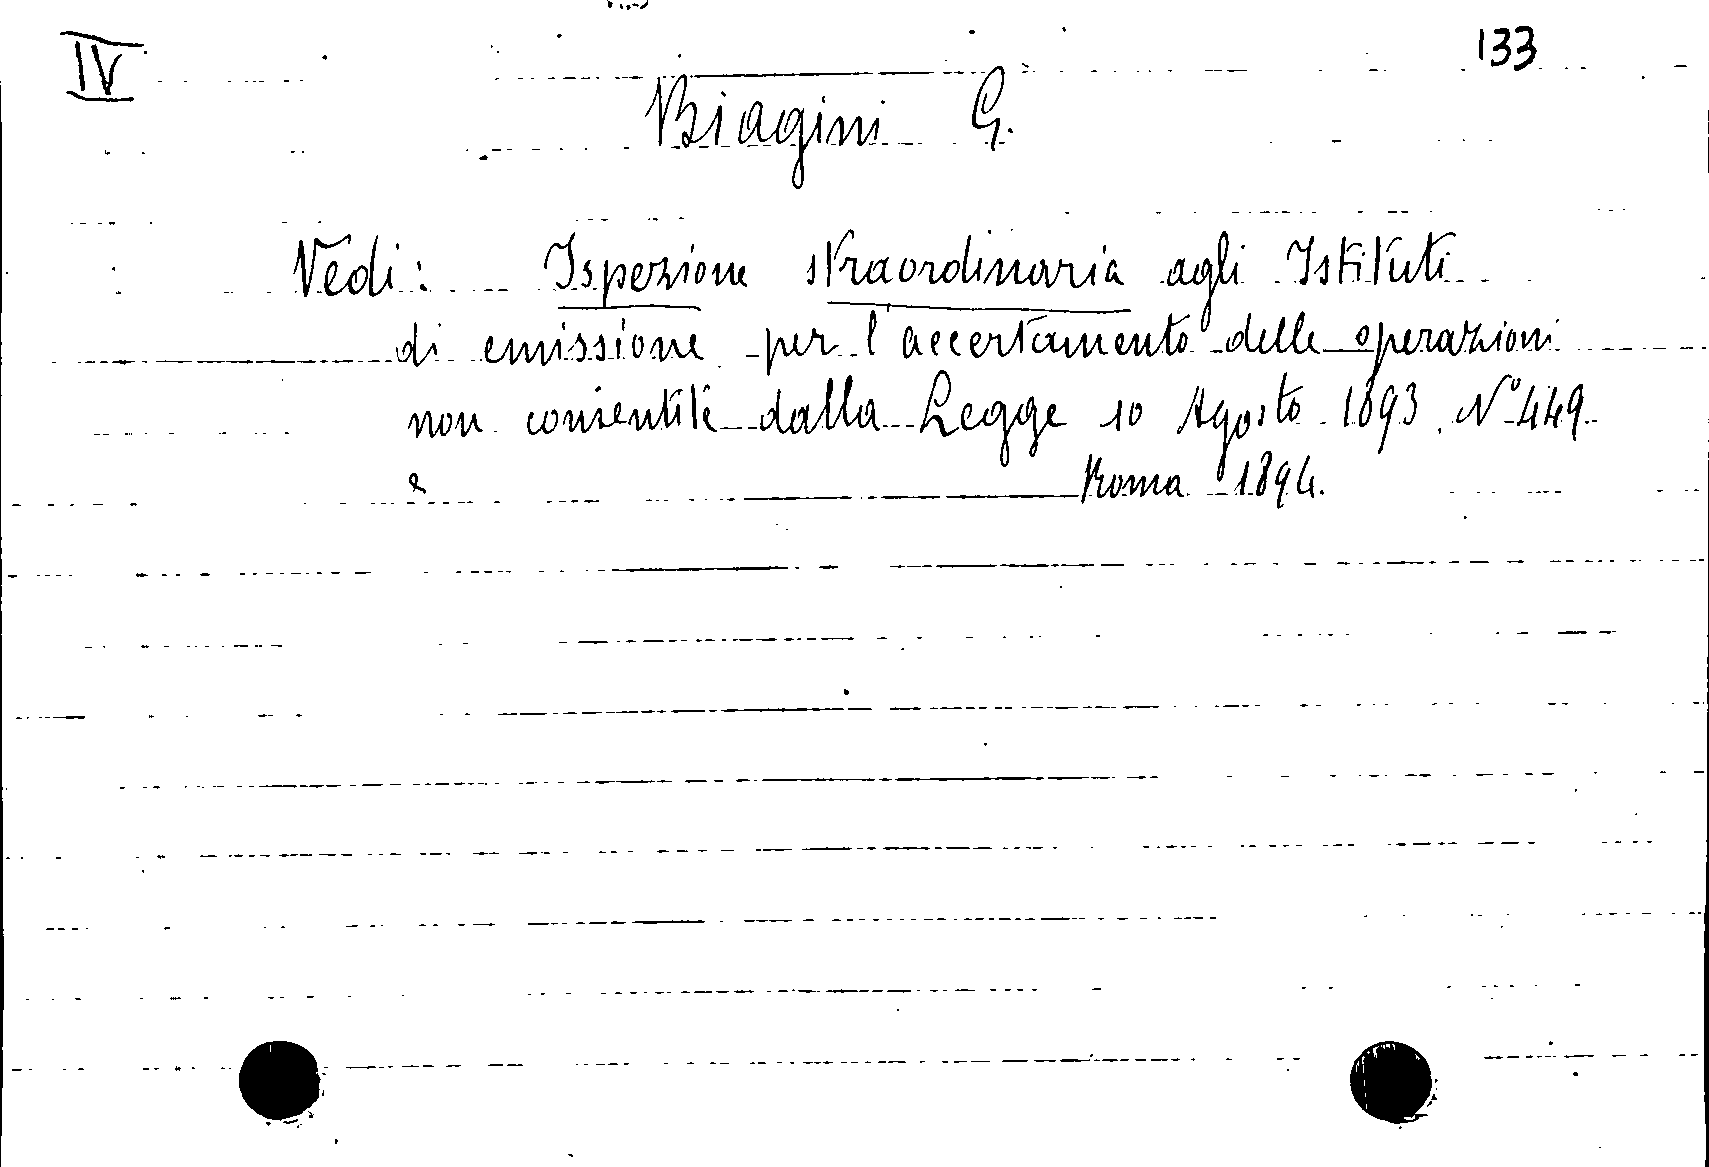 IV 133
Biagini G.
Vedi: Ispezione straordinaria agli Istituti
di emissione per l'accertamento delle operazioni
non consentite dalla Legge 10 Agosto 1893. N° 449
Roma 1894.